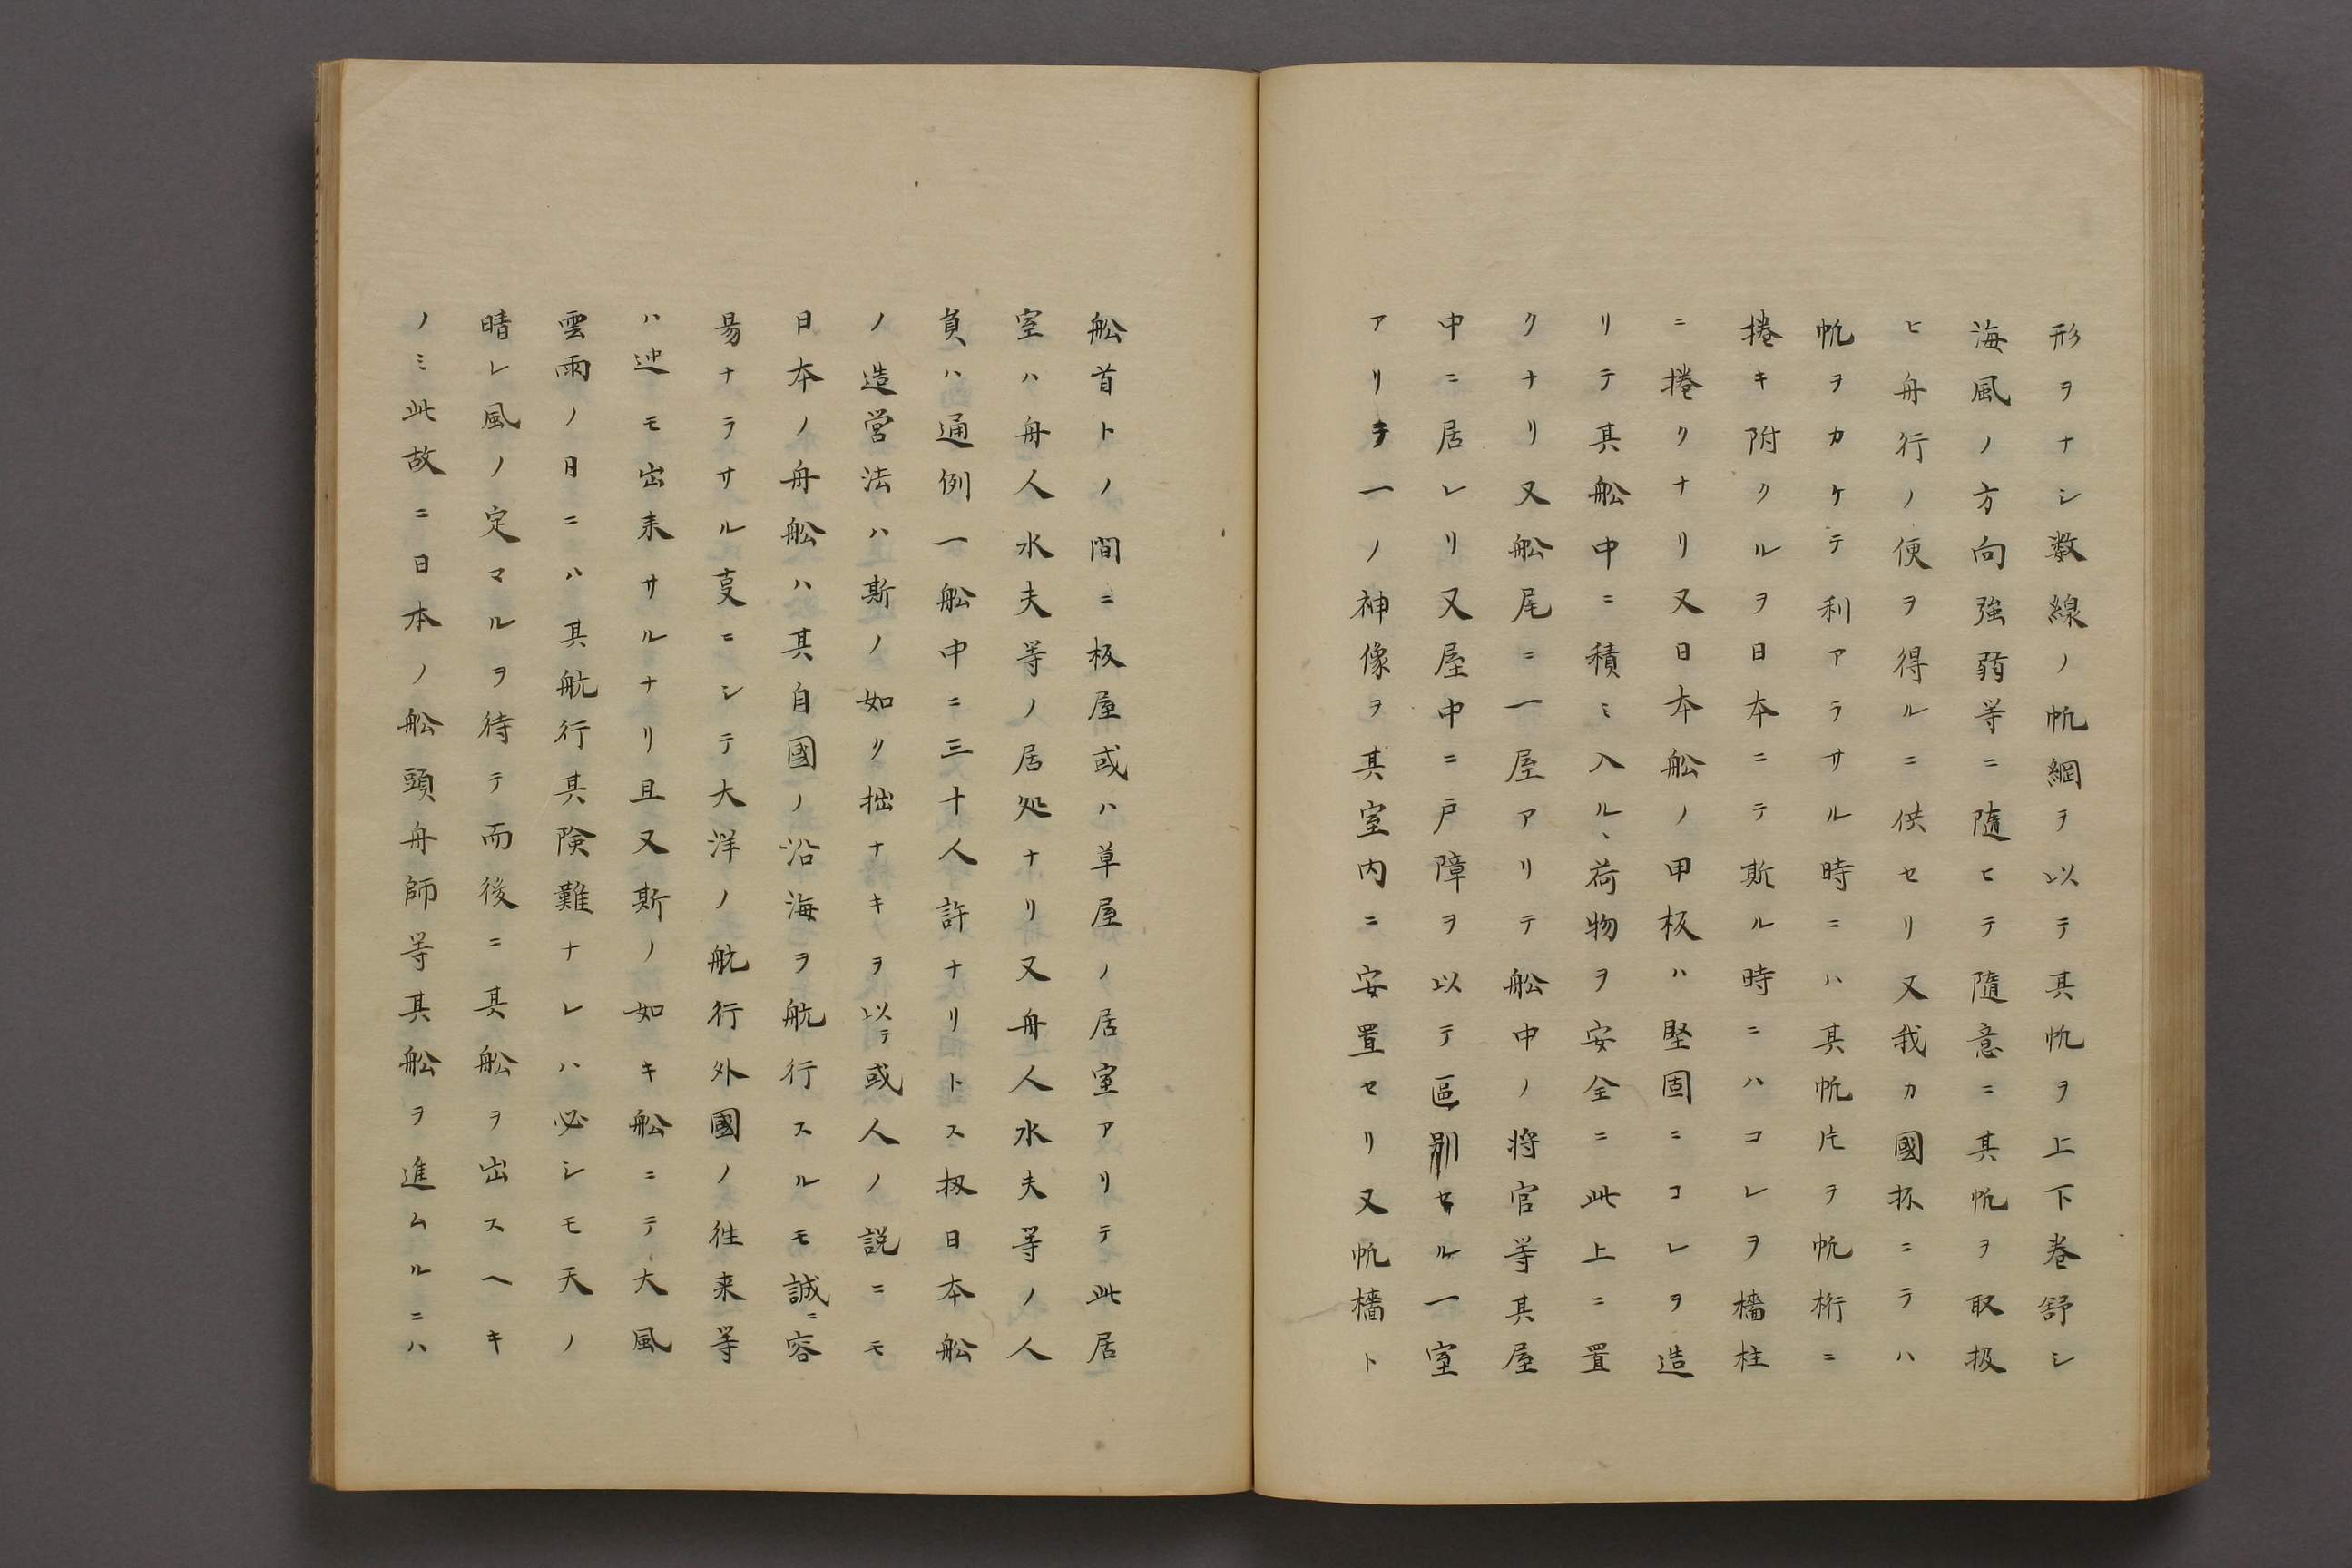 形ヲナシ数線ノ帆綱ヲ以テ其帆ヲ上下巻舒シ
海風ノ方向強弱等ニ随ヒテ随意ニ其帆ヲ取扱
ヒ舟行ノ便ヲ得ルニ供セリ又我カ國抔ニテハ
帆ヲカケテ利アラサル時ニハ其帆片ヲ帆桁ニ
捲キ附クルヲ日本ニテ斯ル時ニハコレヲ檣柱
ニ捲クナリ又日本舩ノ甲板ハ堅固ニコレヲ造
リテ其舩中ニ積ミ入ル、荷物ヲ安全ニ此上ニ置
クナリ又舩尾ニ一屋アリテ舩中ノ将官等其屋
中ニ居レリ又屋中ニ戸障ヲ以テ區別セル一室
アリテ一ノ神像ヲ其室内ニ安置セリ又帆檣ト
舩首トノ間ニ板屋或ハ草屋ノ居室アリテ此居
室ハ舟人水夫等ノ居処ナリ又舟人水夫等ノ人
負ハ通例一舩中ニ三十人許ナリトス扨日本舩
ノ造営法ハ斯ノ如ク拙ナキヲ以テ或人ノ説ニモ
日本ノ舟舩ハ其自國ノ沿海ヲ航行スルモ誠ニ容
昜ナラサル㕝ニシテ大洋ノ航行外國ノ徃来等
ハ迚モ出来サルナリ且又斯ノ如キ舩ニテ大風
雲雨ノ日ニハ其航行其険難ナレハ必シモ天ノ
晴レ風ノ定マルヲ待テ而後ニ其舩ヲ出スヘキ
ノミ此故ニ日本ノ舩頭舟師等其舩ヲ進ムルニハ